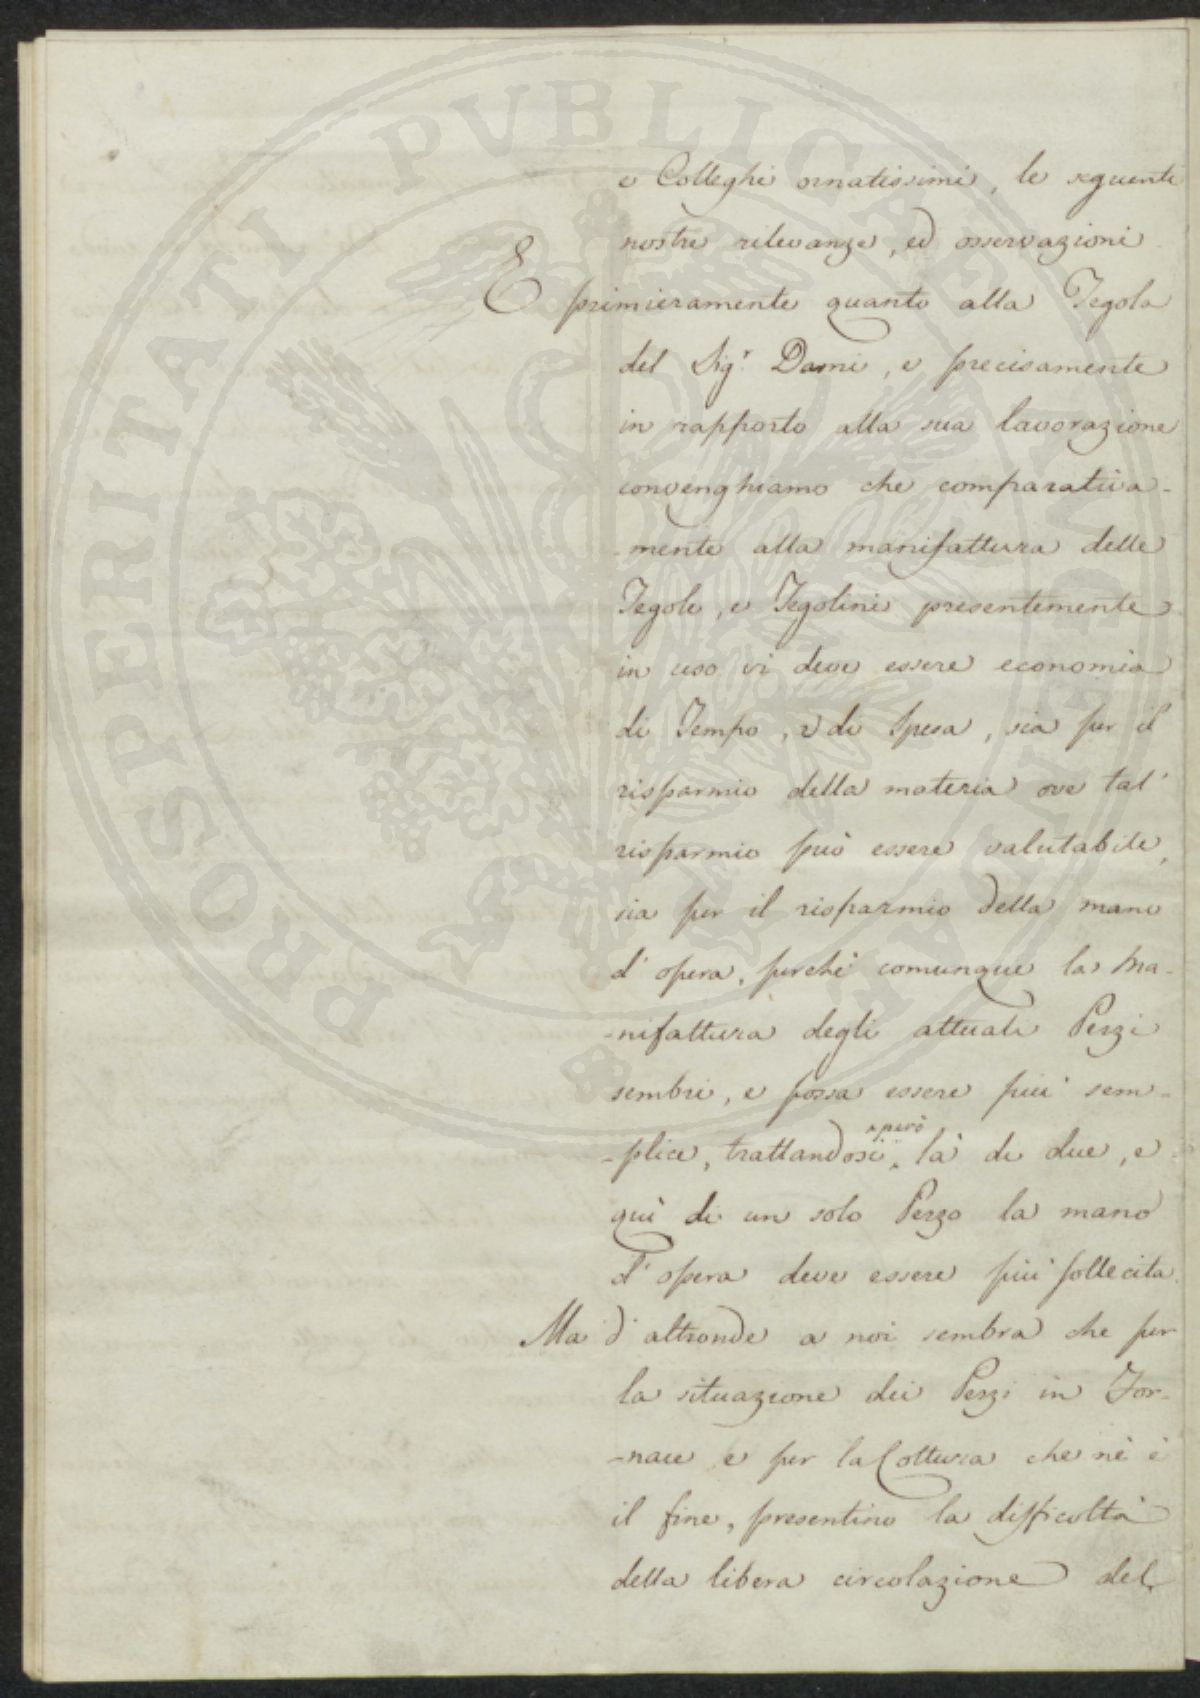 e Colleghi ornatissimi, le seguenti
nostre rilevanze, ed osservazioni
E primieramente quanto alla Tegola
del Sig.r Dami, e precisamente
in rapporto alla sua lavorazione
convenghiamo che comparativa-
-mente alla manifattura delle
Tegole, e Tegolini presentemente
in uso vi deve essere economia
di Tempo, e di Spesa, sia per il
risparmio della materia ove tal'
risparmio può essere valutabile,
sia per il risparmio della mano
d'opera, perchè comunque la Ma-
-nifattura degli attuali Pezzi
sembri, e possa essere più sem-
-plice, trattandosi però là di due, e
quì di un solo Pezzo la mano
d'opera deve essere più sollecita.
Ma d'altronde a noi sembra che per
la situazione dei Pezzi in For-
-nace e per la Cottura che nè è
il fine, presentino la difficoltà
della libera circolazione del
PROSPERITATI PVBLICAE AVGENDAE